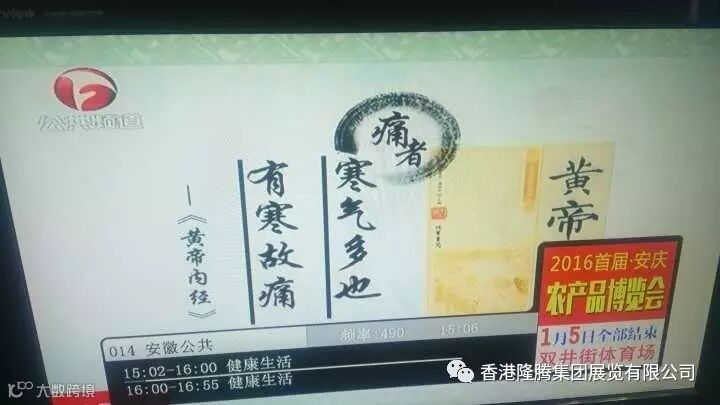 公共频道
痛者
寒气多也
有寒故痛
—《黄帝内经》
黄帝
2016首届·安庆
农产品博览会
1月5日全部结束
双井街体育场
014 安徽公共
频率:490
15:06
15:02-16:00 健康生活
16:00-16:55 健康生活
大数跨境
香港隆腾集团展览有限公司